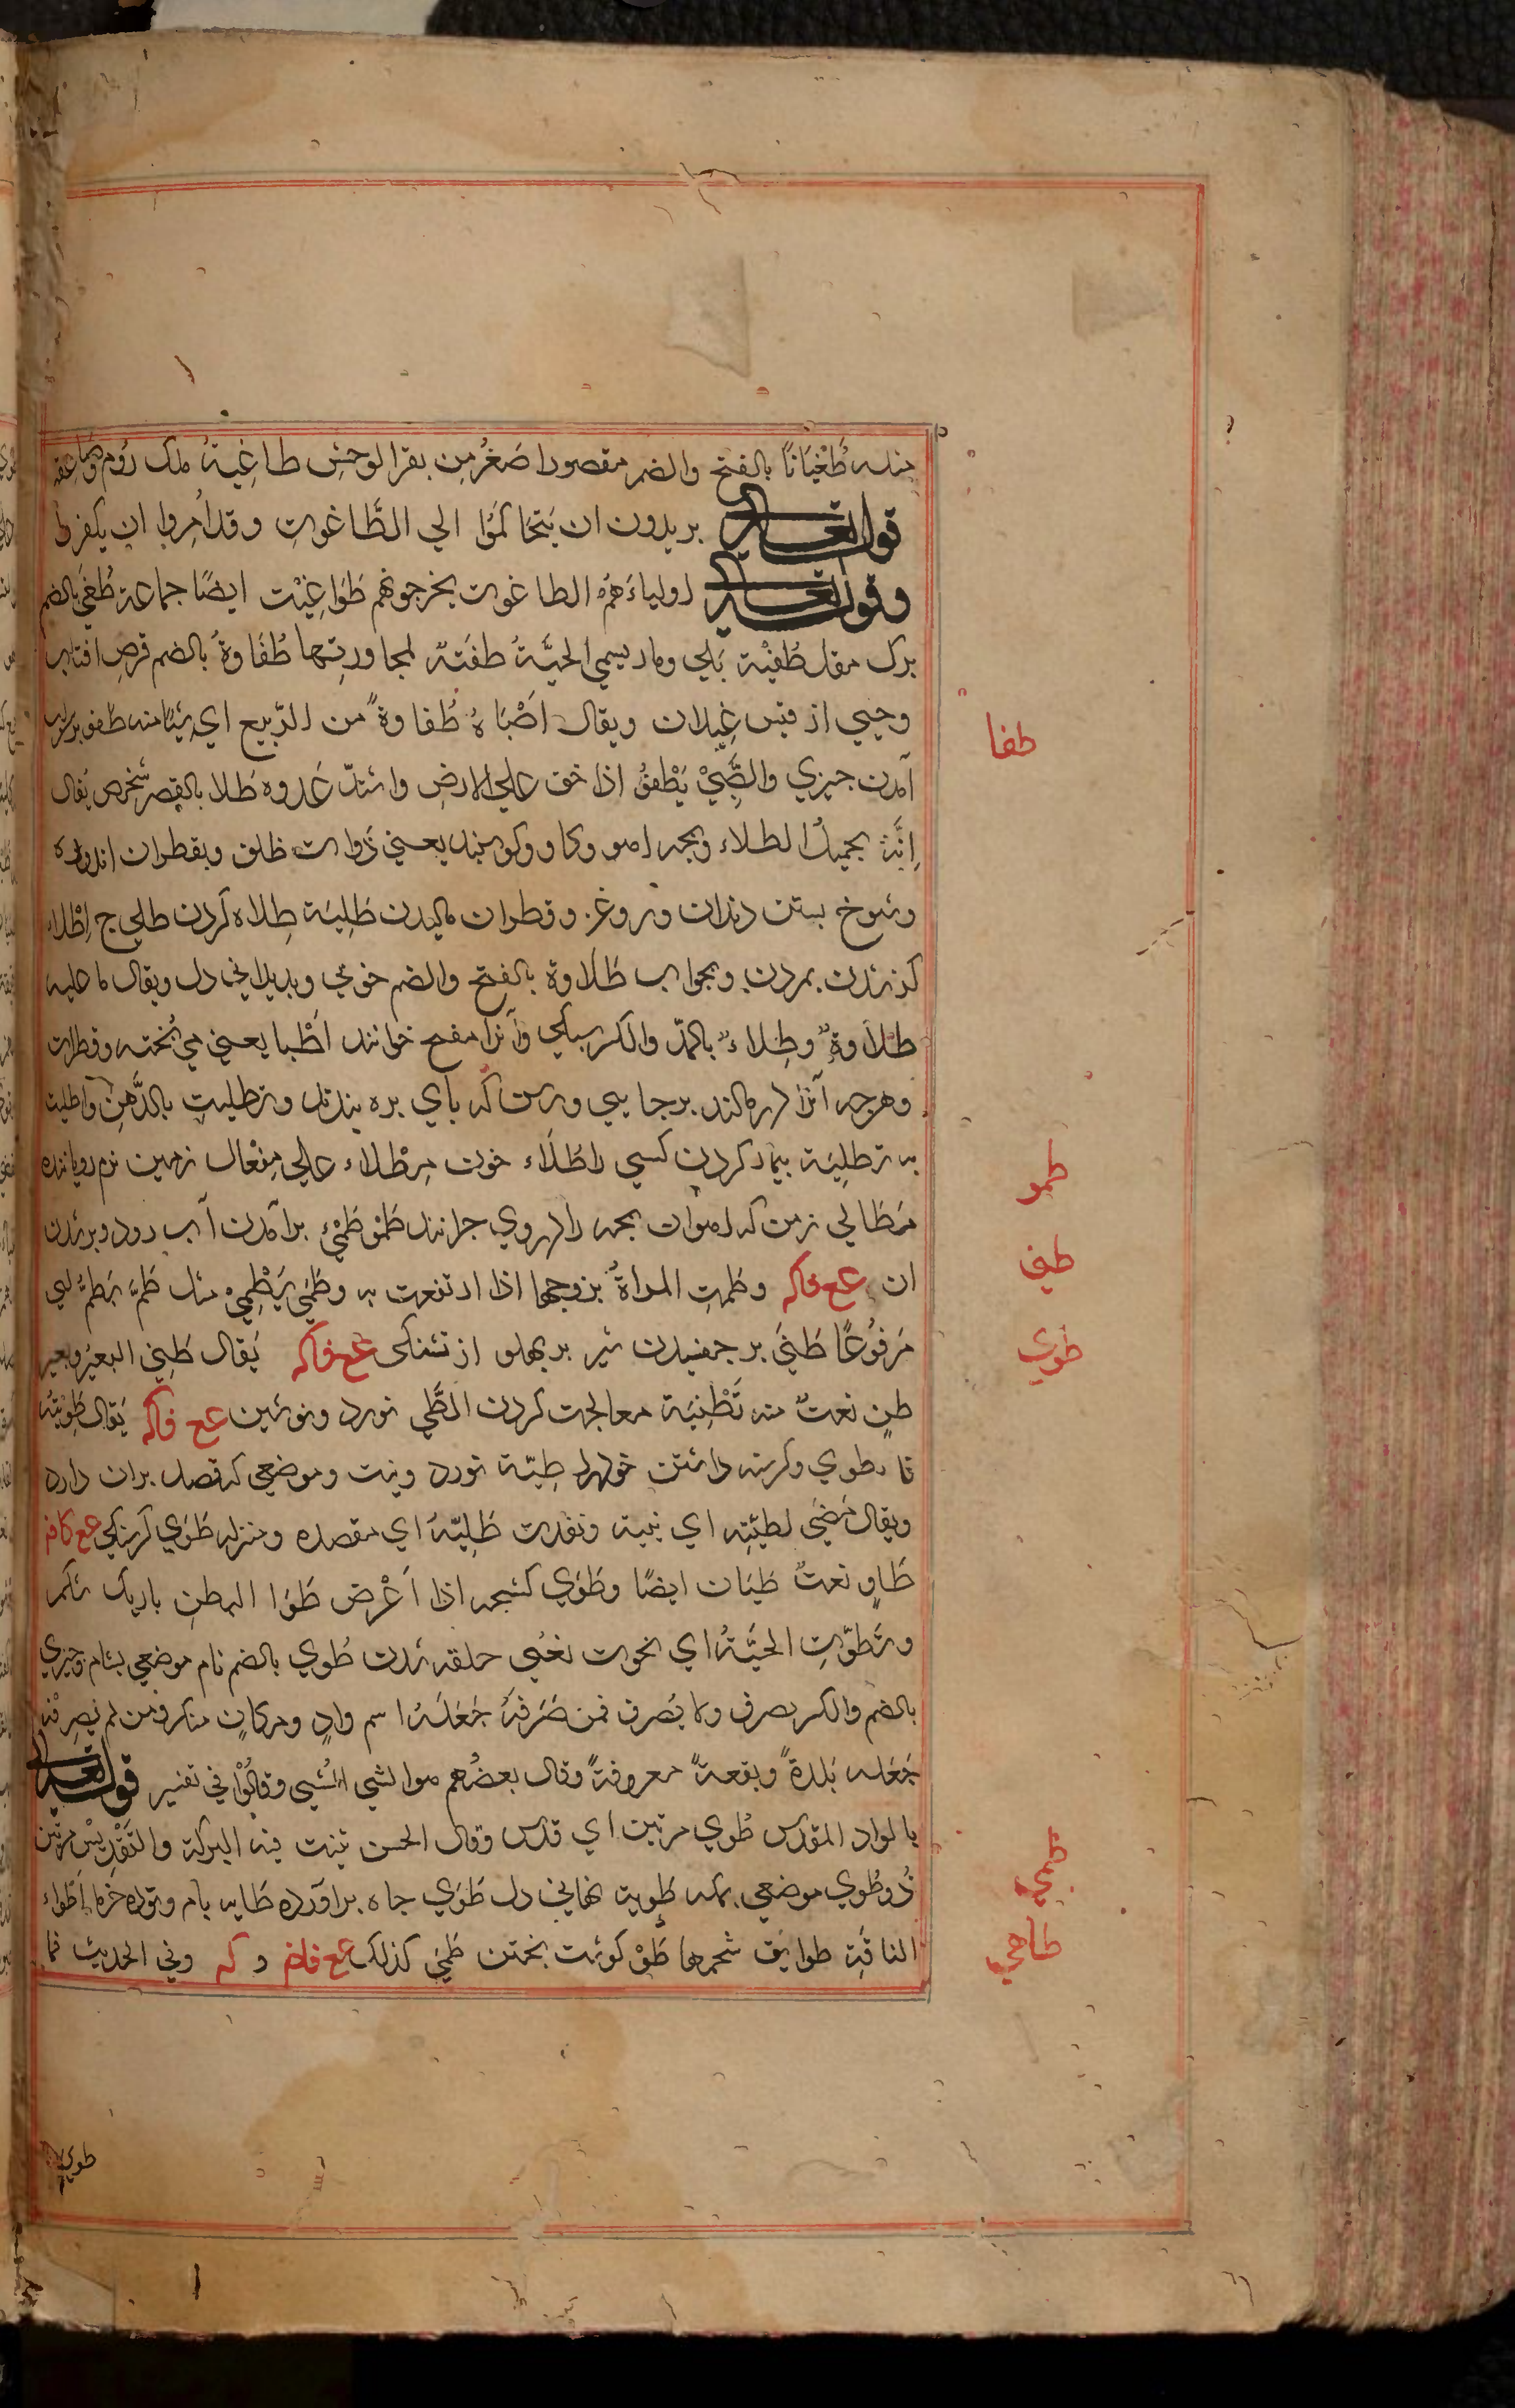 منه طُغْيَانًا بالفتح والضم مقصورا صَغُر من بقر الوحش طاغِيةُ ملك روم وصاعقه
قوله تعالى يريدون ان يَتَحَاكَمُوا الي الطَّاغوتِ وقد أُمِروا ان يكفروا
وقوله تعالى اولياءَهُم الطاغوت يخرجونهم طَوَاغِيْت ايضًا جماعة طُفَي بالضم
برك مقل طُفْيَة يَكي ومار يسمي الحيَّةُ طفيَتَه لمجاورتِها طُفَاوةُ بالضم قرص افتاب
وحيي از قيس غيلان ويقال اَصْبَاهُ طُفاوةً من الرّبيع اي شيئا منه طفو برسراب
آمدن چيزي والظَّبيْ يَطْفوُ اذا خف علي الارض واشتدّ عَدوه طَلا بالقصر شخص يُقال
اِنَّه لجميلُ الطلاء وبچه اهو وكاو وكوسپند يعني ذوات ظلف وبقطران اندوده
وشوخ بستن دندان وروغن وقطران ماليدن طَلِيَة طِلاه كردن طلي ج اِطْلاء
گزندن بمردن وبجواب طَلَاوة بالفتح والضم خوشي وپذيرايي دل ويقال ما عليه
طَلَاوةٌ وطِلاءٌ بالمدّ والكسر سيكي وآنرا مفتح خوانند اَطْبا يعني مي پخته وقطران
وهرچه آنرا درمالند برجايي ورسن كه پاي بره بندند وتطليت بالدُّهنِ واطليت
به تَطلِيَة بيمار كردن كسي را طَلَّاء خون مِطْلاء علي مِفْعال زمين نرم روياننده
مَطَالي زمين كه اهوان بچه را دروي چرانند طَمو طَمْيٌ برآمدن آب رود وپرشدن
ان عع فاكه وطَمَتِ المراةُ بزوجها اذا ارتفعت به وطَمَي يَطْمِيْ مثل طَمَّ يَطُمُّ اي
مَرفُوعًا طَنَي برچفسيدن شير بربهلو از تشنكي عع فاكه يُقال طَنِي البعيرُ وبعير
طنٍ نعت منه تَطْنِيَة معالجت كردن الطَّي نورد ونوشين عع فاكه يَقال طَوَيْتُه
فانطوي وكرسنه داشتن خودرا طِيّة نورد ونيت وموضعي كه قصد بران دارد
ويقال مَضَي لطيَّتِه اي نيية وبَعُدت طِيَّتُه اي مقصده ومنزله طَوَي كرسنكي عع كافه
طَاوٍ نعت طَيَان ايضًا وطَوَي كشحه اذا اَعْرض طَوَا البطن باريك شكم
وتَطوّتِ الحيَّةُ اي تحوت يَعْنِي حلقه شدن طُوي بالضم نام موضعي بشام وچيزي
بالضم والكسر يصرف ولا يُصرف فمن صَرَفَهُ جَعَلَهُ اسم وادٍ ومكانٍ منكر ومن لم يصرفه
جَعَله بَلدةً وبقعةً معروفةً وقال بعضُهم هو الشي المُثني وقالوْا في تفسير قوله تعالى
بالواد المقدس طُوي مرتين اي قدس وقال الحسن ثنيت فيه البركة والتَقْديسْ مرتين
ذُوطُوي موضعي بمكه طَوِيت نهاني دل طَوَي چاه برآورده طَايه بام وتوده خرما اَطواء
الناقة طوايق شحمها طَهْو كوشت پختن طَهْي كذلك عع فافم وكه وفي الحديث فما
طفا
طمو
طني
طوي
طمي
طاهي
طوي